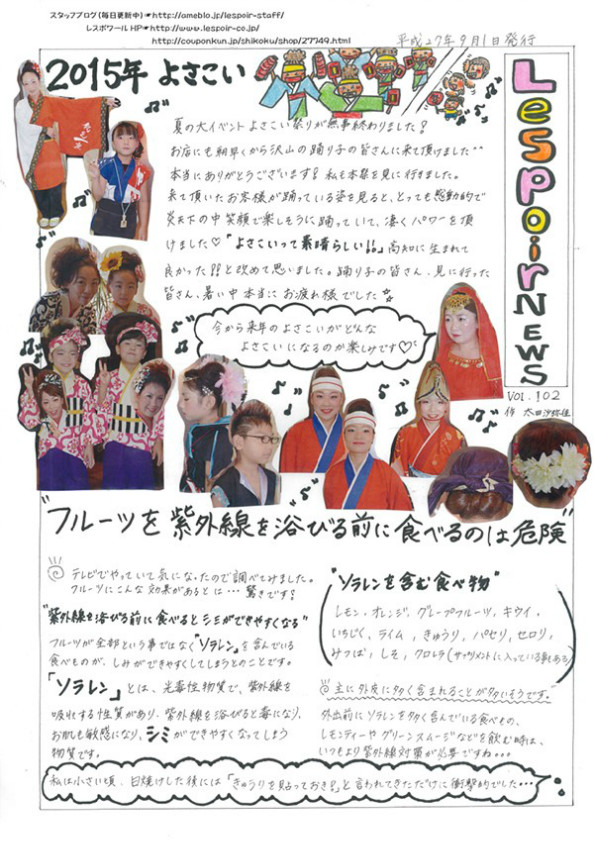 スタッフブログ(毎日更新中)☛http://ameblo.jp/lespoir-staff/
レスポワール HP☛http://www.lespoir-co.jp/
http://couponkun.jp/shikoku/shop/27749.html
平成27年9月1日発行
2015年 よさこい
LespoirNEWS
VOL.102
夏の大イベントよさこい祭りが無事終わりました!
お店にも朝早くから沢山の踊り子の皆さんに来て頂けました^^
本当にありがとうございます!私も本祭を見に行きました。
来て頂いたお客様が踊っている姿を見ると、とっても感動的で
炎天下の中笑顔で楽しそうに踊っていて、凄くパワーを頂
けました♡"よさこいって素晴らしい!!"高知に生まれて
良かった!!と改めて思いました。踊り子の皆さん、見に行った
皆さん、暑い中本当にお疲れ様でした☆
今から来年のよさこいがどんな
よさこいになるのか楽しみです♡
"フルーツを紫外線を浴びる前に食べるのは危険"
テレビでやっていて気になったので調べてみました。
フルーツにこんな効果があるとは…驚きです!
"紫外線を浴びる前に食べるとシミができやすくなる"
フルーツが全部という事ではなく"ソラレン"を含んでいる
食べものが、しみができやすくしてしまうとのことです。
「ソラレン」とは、光毒性物質で、紫外線を
吸収する性質があり、紫外線を浴びると毒になり、
お肌も敏感になり、シミができやすくなってしまう
物質です。
"ソラレンを含む食べ物"
レモン、オレンジ、グレープフルーツ、キウイ、
いちじく、ライム、きゅうり、パセリ、セロリ、
みつば、しそ、クロレラ(サプリメントに入っている事もある)
◎主に外皮に多く含まれることが多いそうです。
外出前にソラレンを多く含んでいる食べもの、
レモンティーやグリーンスムージなどを飲む時は、
いつもより紫外線対策が必要ですね…
私は小さい頃、日焼けした後には「きゅうりを貼っておき!」と言われてきただけに衝撃的でした…